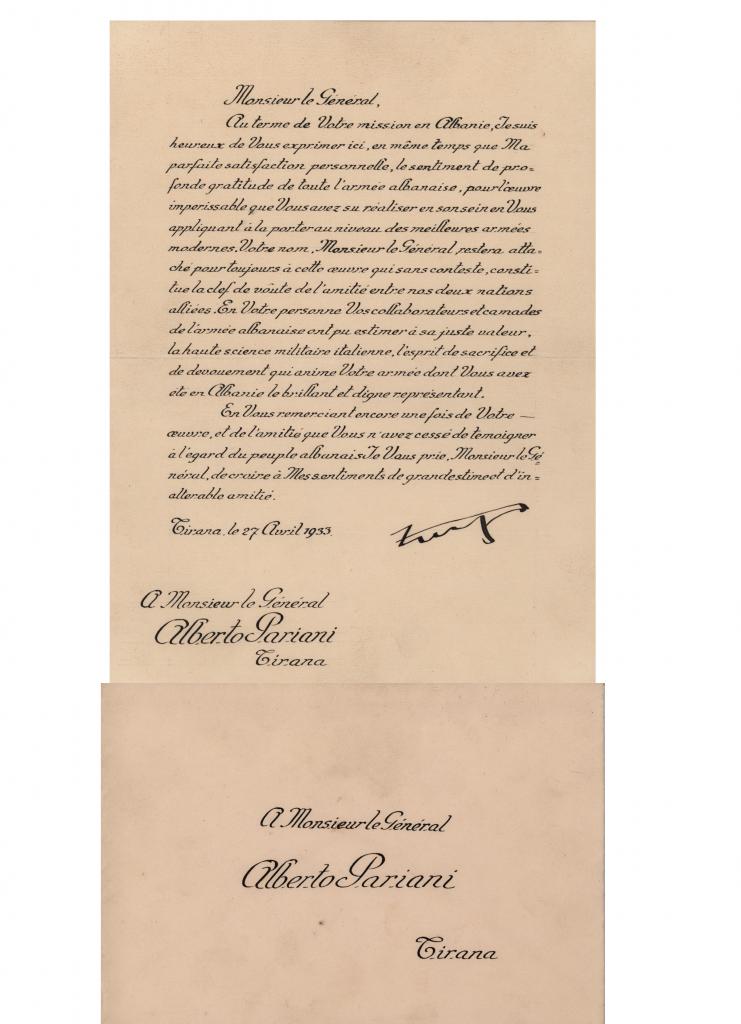 Monsieur le Général,
Au terme de Votre mission en Albanie, Je suis
heureux de Vous exprimer ici, en même temps que Ma
parfaite satisfaction personnelle, le sentiment de pro=
fonde gratitude de toute l'armée albanaise, pour l'œuvre
imperissable que Vous avez su réaliser en son sein en Vous
appliquant à la porter au niveau des meilleures armées
modernes. Votre nom, Monsieur le Général, restera atta=
ché pour toujours à cette œuvre qui sans conteste, consti=
tue la clef de voûte de l'amitié entre nos deux nations
alliées. En Votre personne Vos collaborateurs et camades
de l'armée albanaise ont pu estimer à sa juste valeur,
la haute science militaire italienne, l'esprit de sacrifice et
de devouement qui anime Votre armée dont Vous avez
ete en Albanie le brillant et digne représentant.
En Vous remerciant encore une fois de Votre —
œuvre, et de l'amitié que Vous n'avez cessé de temoigner
à l'égard du peuple albanais Je Vous prie, Monsieur le Gé=
néral, de croire à Mes sentiments de grande estime et d'in=
alterable amitié.
Tirana, le 27 Avril 1933.
A Monsieur le Général
Alberto Pariani
Tirana
A Monsieur le Général
Alberto Pariani
Tirana